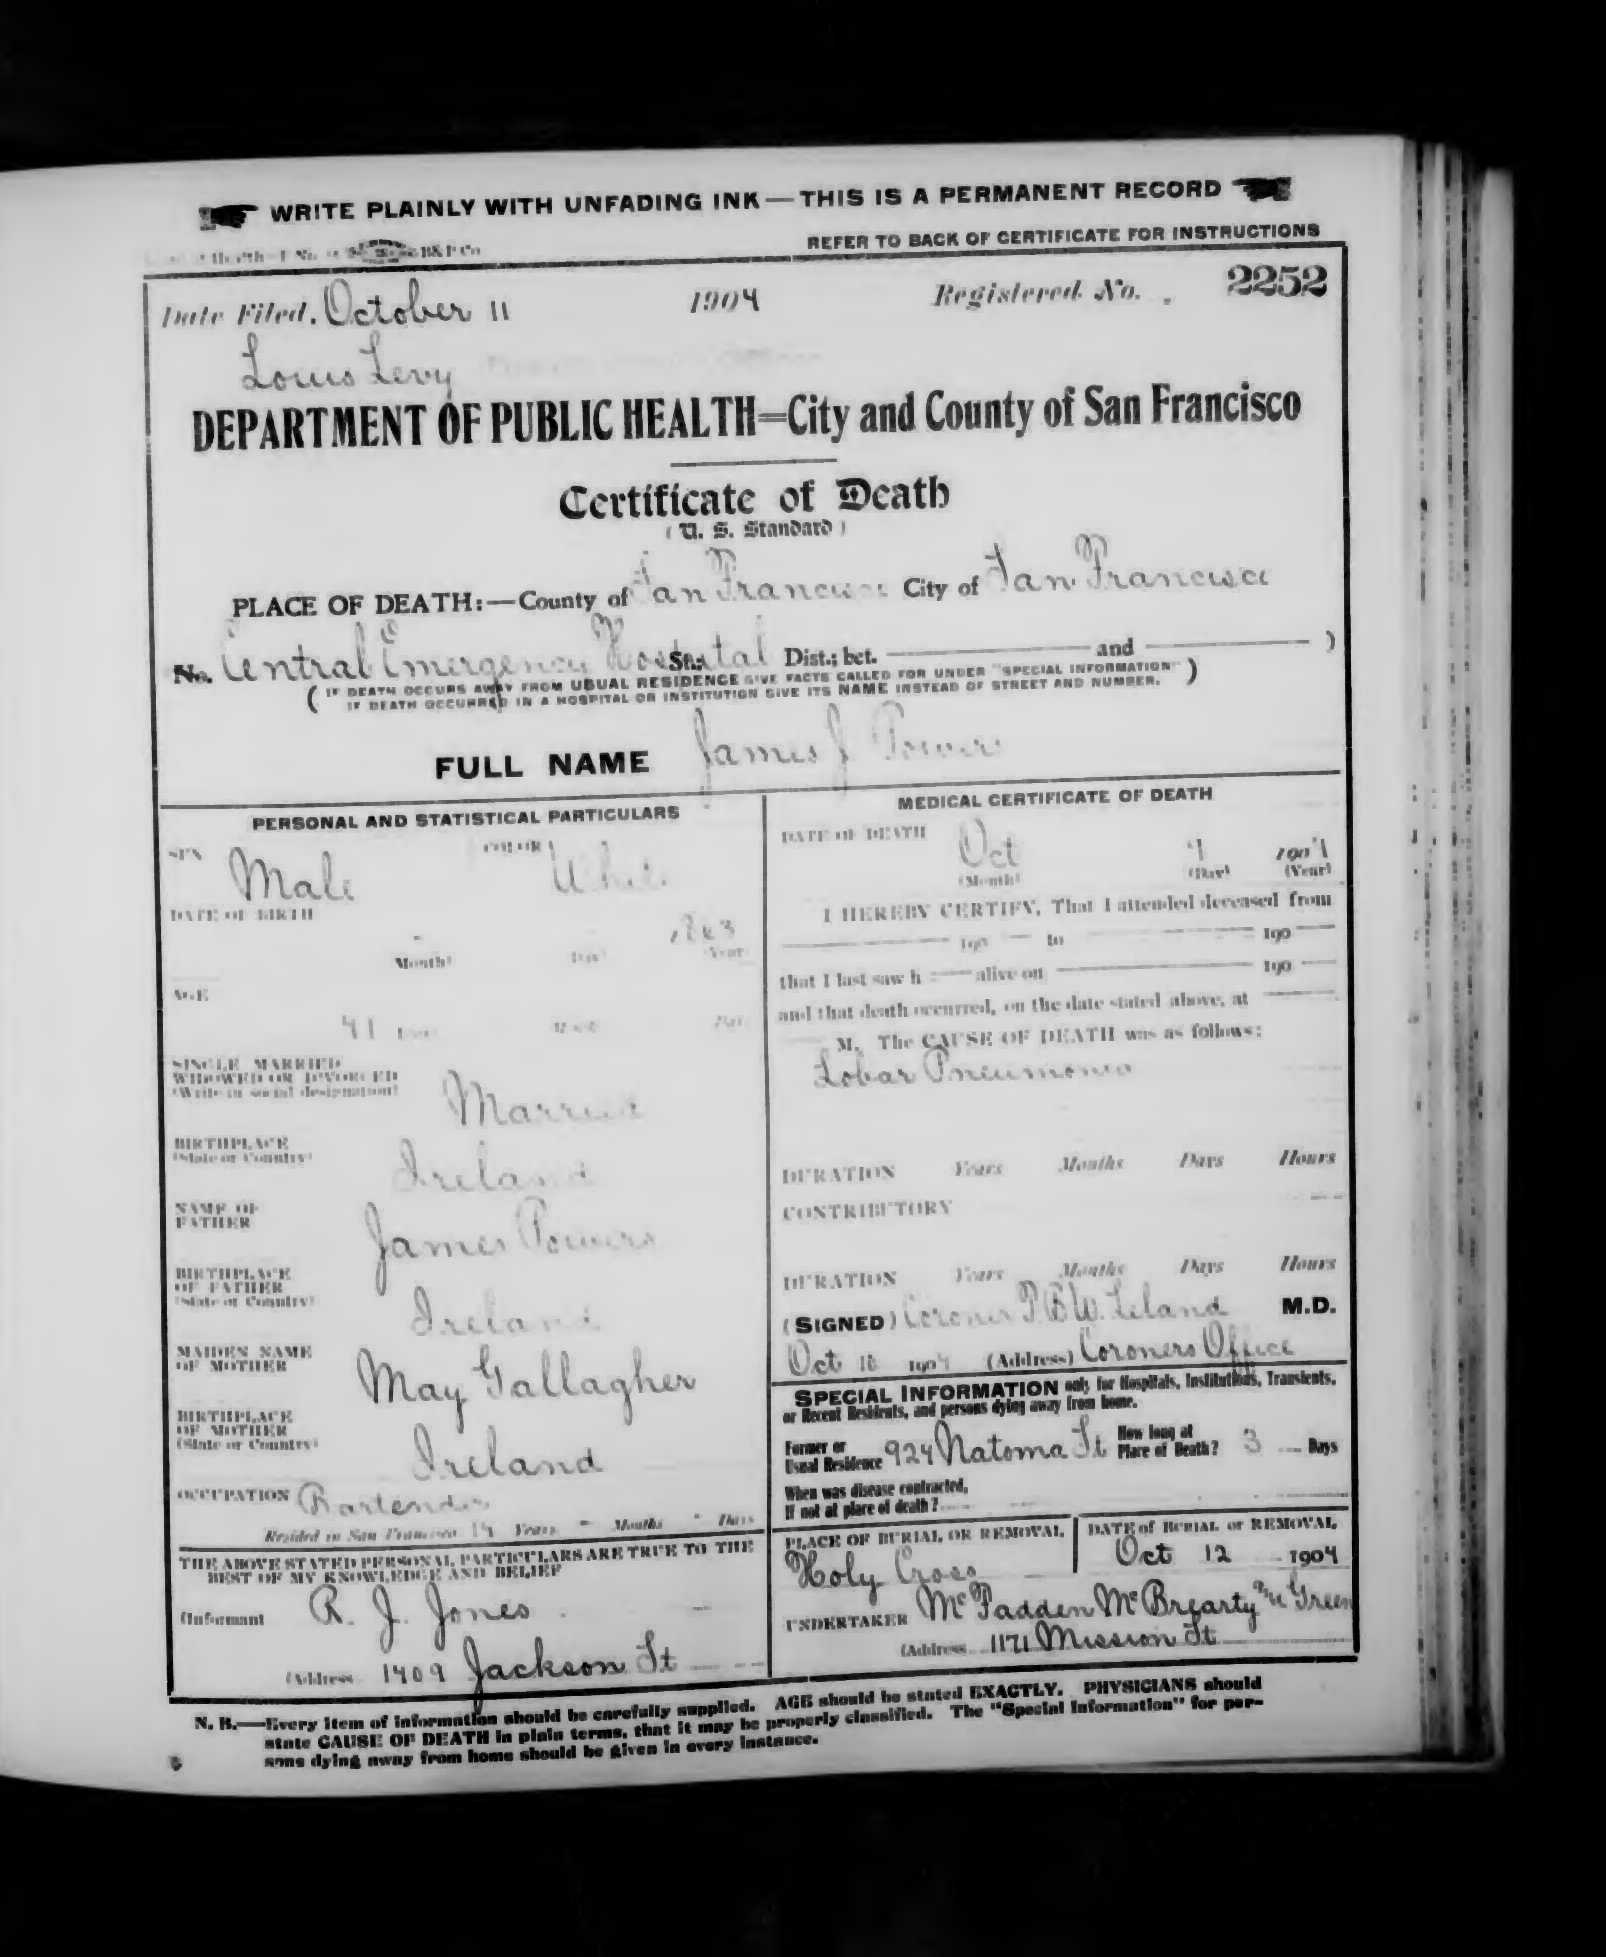 WRITE PLAINLY WITH UNFADING INK — THIS IS A PERMANENT RECORD
B&P Co
REFER TO BACK OF CERTIFICATE FOR INSTRUCTIONS
Date Filed, October 11 1904 Registered No. 2252
Louis Levy
DEPARTMENT OF PUBLIC HEALTH=City and County of San Francisco
Certificate of Death
(U. S. Standard)
PLACE OF DEATH:—County of San Francisco City of San Francisco
No. Central Emergency Hospital St.; Dist.; bet. and )
( IF DEATH OCCURS AWAY FROM USUAL RESIDENCE GIVE FACTS CALLED FOR UNDER "SPECIAL INFORMATION" )
IF DEATH OCCURRED IN A HOSPITAL OR INSTITUTION GIVE ITS NAME INSTEAD OF STREET AND NUMBER.
FULL NAME James J Powers
PERSONAL AND STATISTICAL PARTICULARS
SEX Male COLOR White
DATE OF BIRTH
1863
(Month) (Day) (Year)
AGE
41 Years Months Days
SINGLE, MARRIED
WIDOWED OR DIVORCED
(Write in social designation)
Married
BIRTHPLACE
(State or Country)
Ireland
NAME OF
FATHER
James Powers
BIRTHPLACE
OF FATHER
(State or Country)
Ireland
MAIDEN NAME
OF MOTHER
May Gallagher
BIRTHPLACE
OF MOTHER
(State or Country)
Ireland
OCCUPATION Bartender
Resided in San Francisco Years - Months - Days
THE ABOVE STATED PERSONAL PARTICULARS ARE TRUE TO THE
BEST OF MY KNOWLEDGE AND BELIEF
(Informant R. J. Jones
(Address 1409 Jackson St
MEDICAL CERTIFICATE OF DEATH
DATE OF DEATH
Oct 1904
(Month) (Day) (Year)
I HEREBY CERTIFY, That I attended deceased from
190 to 190
that I last saw h alive on 190
and that death occurred, on the date stated above, at
M. The CAUSE OF DEATH was as follows:
Lobar Pneumonia
DURATION Years Months Days Hours
CONTRIBUTORY
DURATION Years Months Days Hours
(SIGNED) Coroner T. B. W. Leland M.D.
Oct 10 1904 (Address) Coroners Office
SPECIAL INFORMATION only for Hospitals, Institutions, Transients,
or Recent Residents, and persons dying away from home.
Former or
Usual Residence 924 Natoma St How long at
Place of Death? 3 Days
When was disease contracted,
If not at place of death?
PLACE OF BURIAL OR REMOVAL
Holy Cross
DATE of BURIAL or REMOVAL
Oct 12 1904
UNDERTAKER McFadden McBrearty & Green
(Address 1171 Mission St
N. B.—Every item of information should be carefully supplied. AGE should be stated EXACTLY. PHYSICIANS should
state CAUSE OF DEATH in plain terms, that it may be properly classified. The "Special Information" for per-
sons dying away from home should be given in every instance.